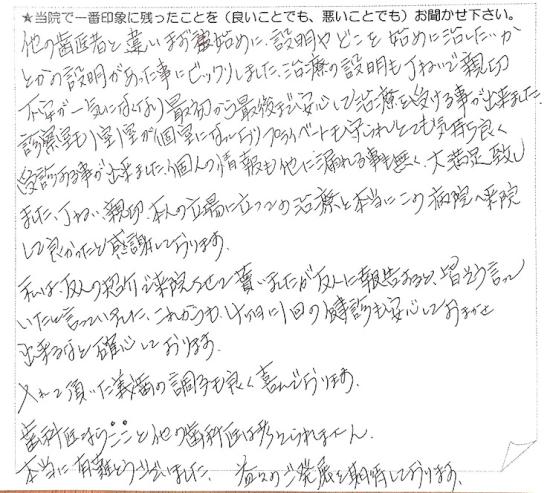 ★当院で一番印象に残ったことを（良いことでも、悪いことでも）お聞かせ下さい。
他の歯医者と違いまず始めに、説明やどこを始めに治したいか
とかの説明があった事にビックリしました。治療の説明も丁ねいで親切
不安が一気になくなり最初から最後まで安心して治療を受ける事が出来ました。
診察室も1室1室が個室になっておりプライベートも守られとても気持ち良く
受診する事が出来ました。個人の情報も他に漏れる事も無く、大満足致し
ました。丁ねい、親切、本人の立場に立っての治療と本当にこの病院へ来院
して良かったと感謝しております。
私は友人の紹介で来院させて貰いましたが友人に報告すると、皆そう言って
いたと言っていました。これからも、4ヶ月に1回の健診も安心しておまかせ
出来るなと確心しております。
入れて頂いた義歯の調子も良く喜んでおります。
歯科医はもうここと他の歯科医は考えられません。
本当に有難とうございました。 益々のご発展を期待しております。